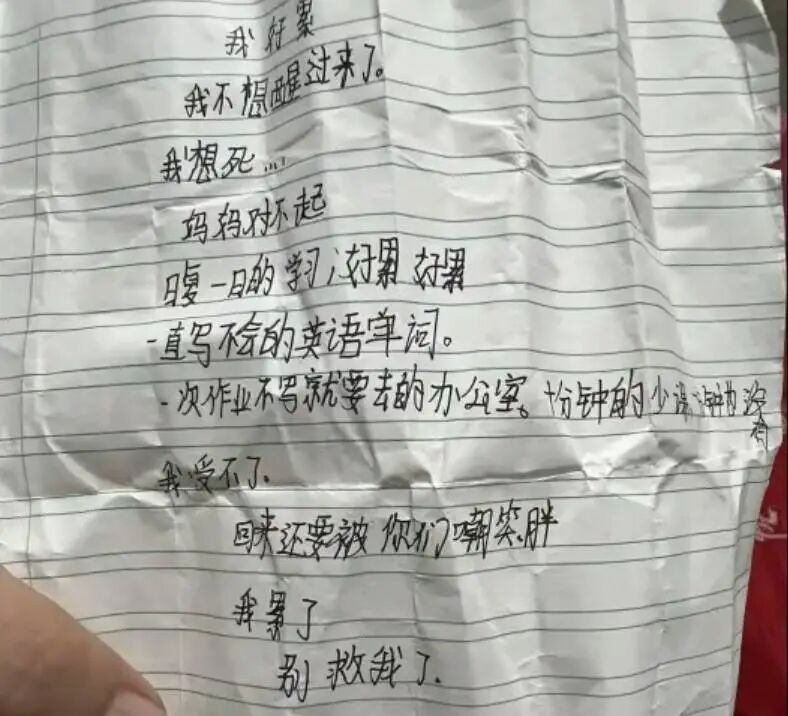 我好累
我不想醒过来了。
我想死...
妈妈对不起
日复一日的学习,好累 好累
一直写不会的英语单词。
一次作业不写就要去的办公室。十分钟的少课 钟也没有
我受不了.
回来还要被你们嘲笑胖
我累了
别救我了.